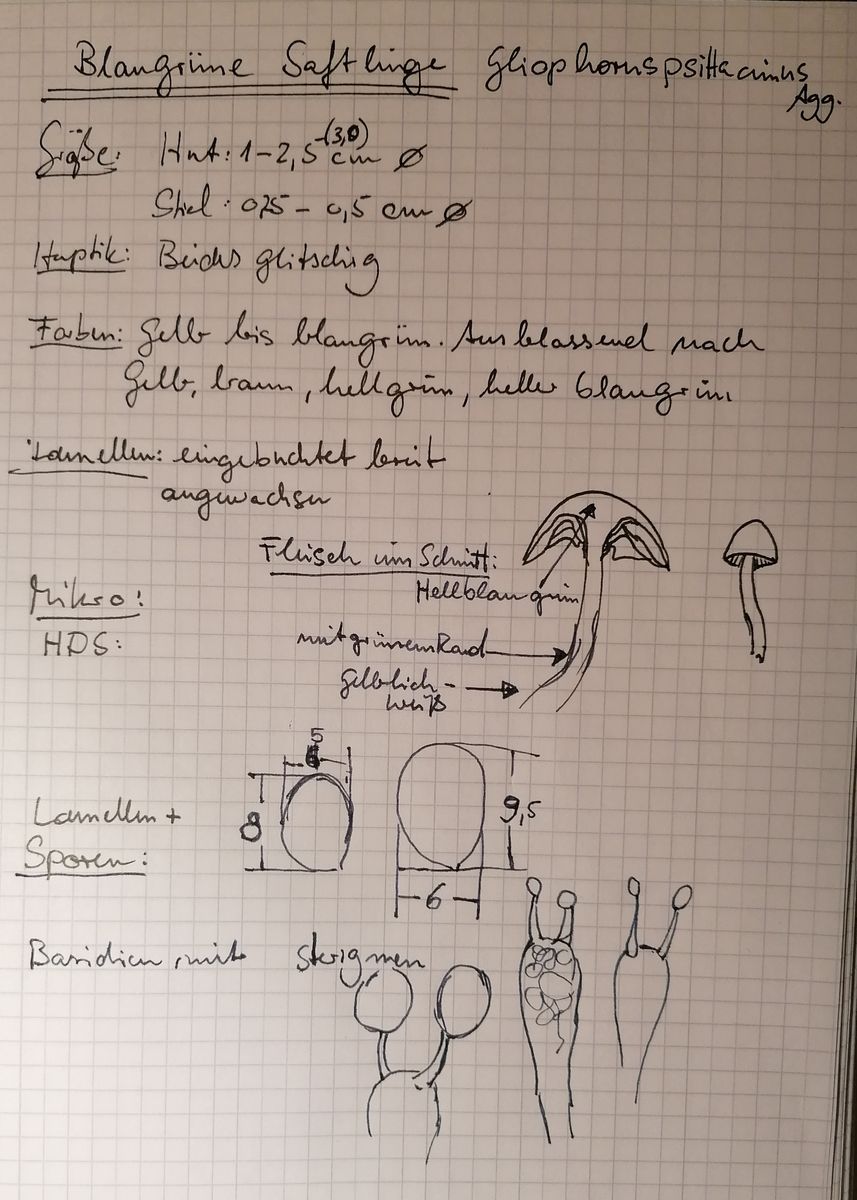 Blaugrüne Saftlinge Gliophorus psittacinus
Agg.
Größe: Hut: 1-2,5-(3,0) cm ø
Stiel: 0,25 - 0,5 cm ø
Haptik: Beides glitschig
Farben: Gelb bis blaugrün. Ausblassend nach
Gelb, braun, hellgrün, heller blaugrün
Lamellen: eingebuchtet breit
angewachsen
Fleisch im Schnitt:
Hellblaugrün
Mikro:
HDS:
mit grünem Rand
Gelblich-
weiß
5
8
9,5
6
Lamellen +
Sporen:
Basidien mit Sterigmen